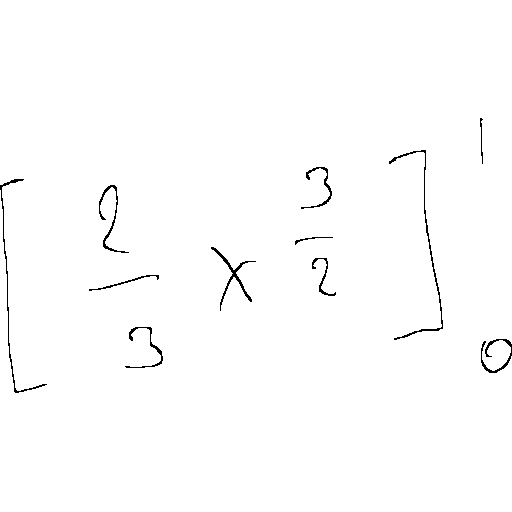 \left[ \frac{2}{3} x \frac{3}{2} \right]_{0}^{1}